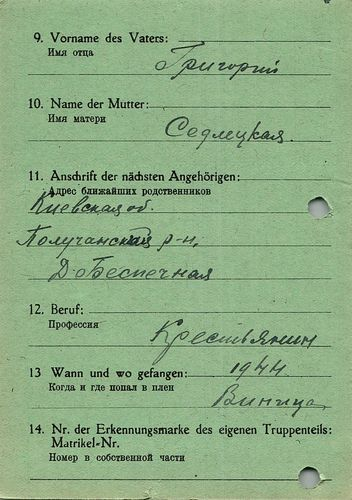 9. Vorname des Vaters:
Имя отца
Григорий
10. Name der Mutter:
Имя матери
Седлецкая.
11. Anschrift der nächsten Angehörigen:
Адрес ближайших родственников
Киевская об.
Получанский р-н,
Д-Беспечная
12. Beruf:
Профессия
Крестьянин
13 Wann und wo gefangen:
Когда и где попал в плен
1944
Виница
14. Nr. der Erkennungsmarke des eigenen Truppenteils:
Matrikel-Nr.
Номер в собственной части